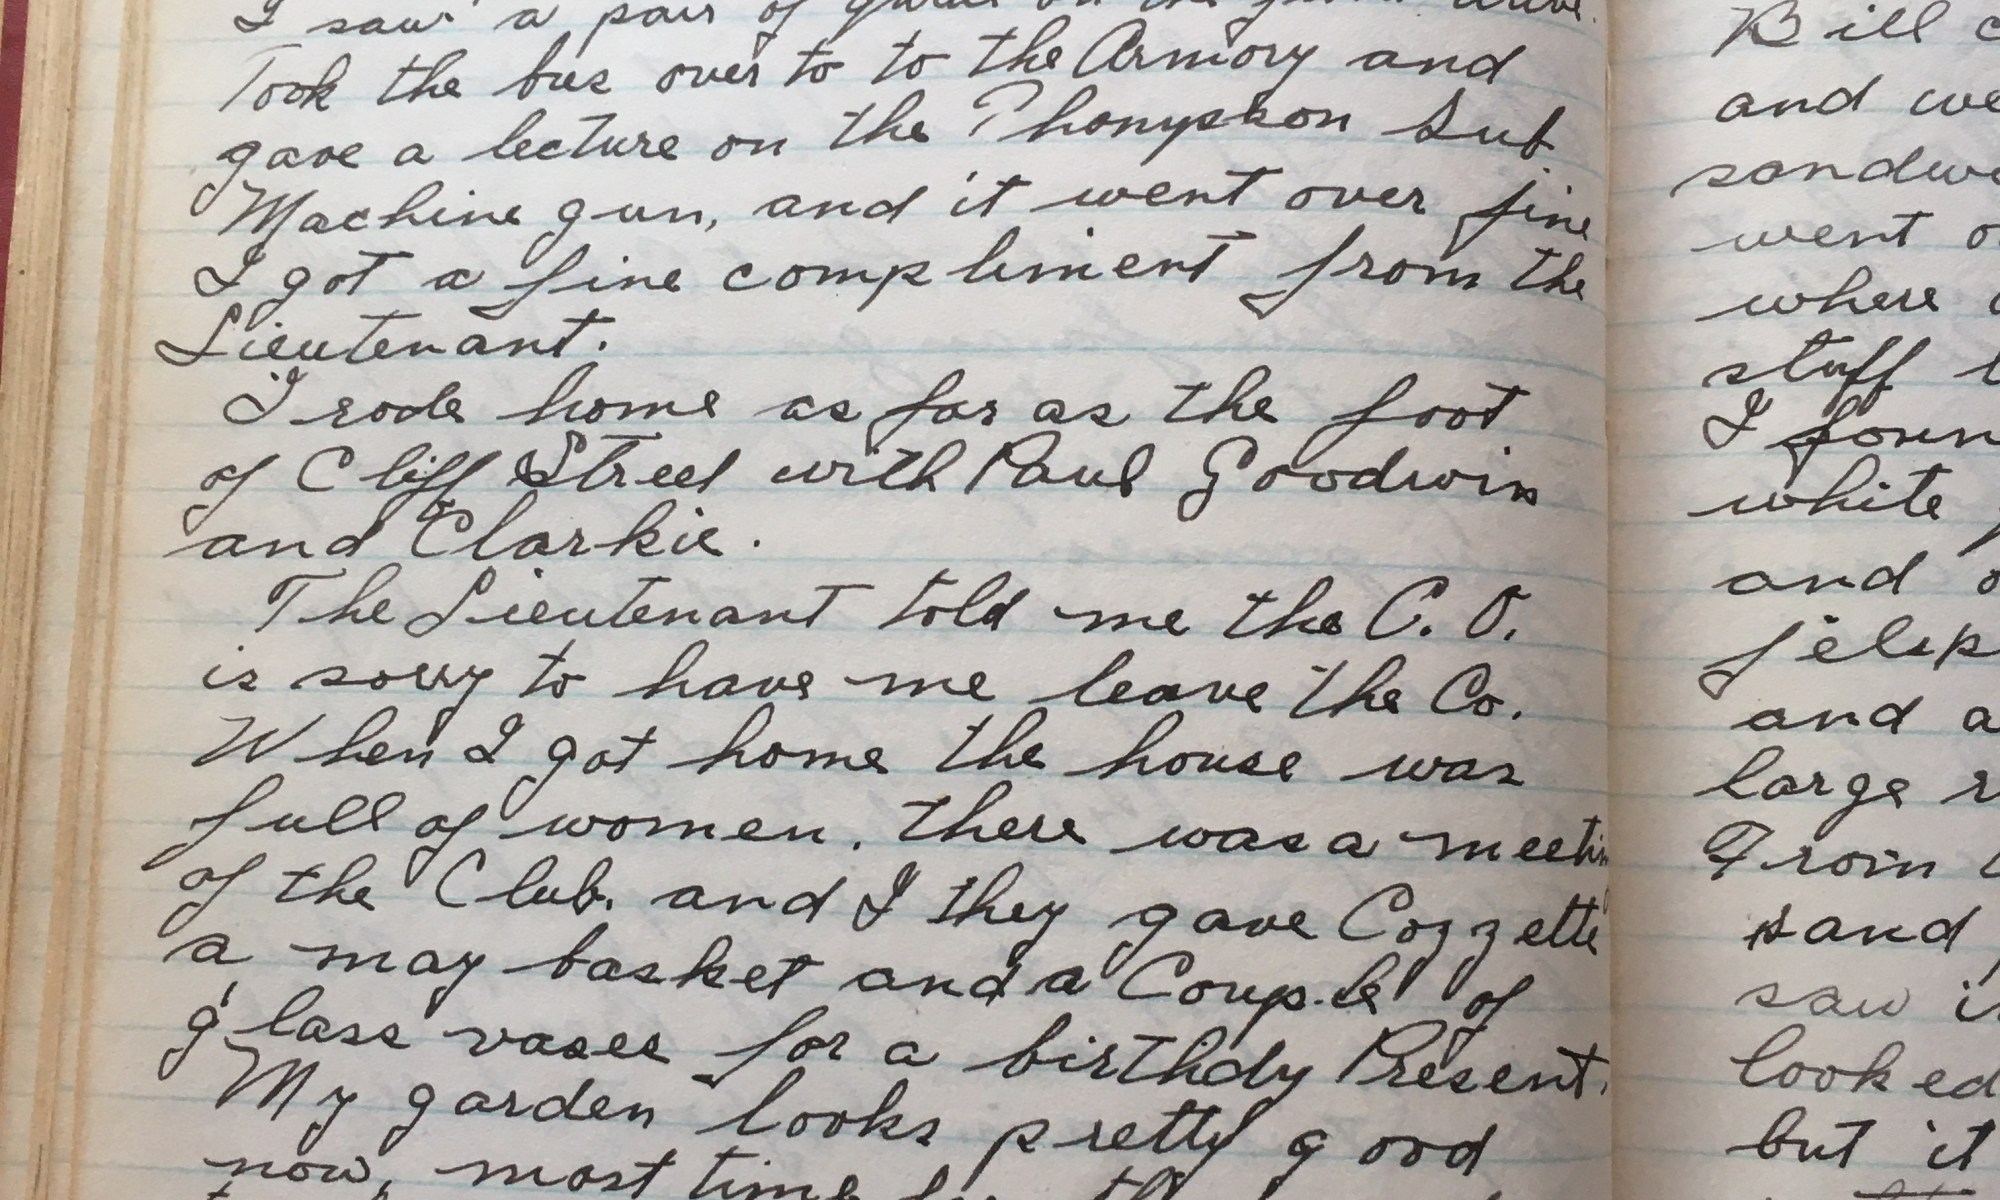 I saw a pair of on the
Took the bus over to to the Armory and
gave a lecture on the Thompskon Sub
Machine gun, and it went over fine
I got a fine compliment from the
Lieutenant.
I rode home as far as the foot
of Cliff Street with Paul Goodwin
and Clarkie.
The Lieutenant told me the C. O.
is sorry to have me leave the Co.
When I got home the house was
full of women. there was a meetin
of the Club. and I they gave Cozzette
a may basket and a Couple of
glass vases for a birthdy Present.
My garden looks pretty good
now, most time
Bill
and we
sandw
went o
where
stuff
I foun
white
and o
jelep
and a
large r
From
sand
saw i
looked
but it